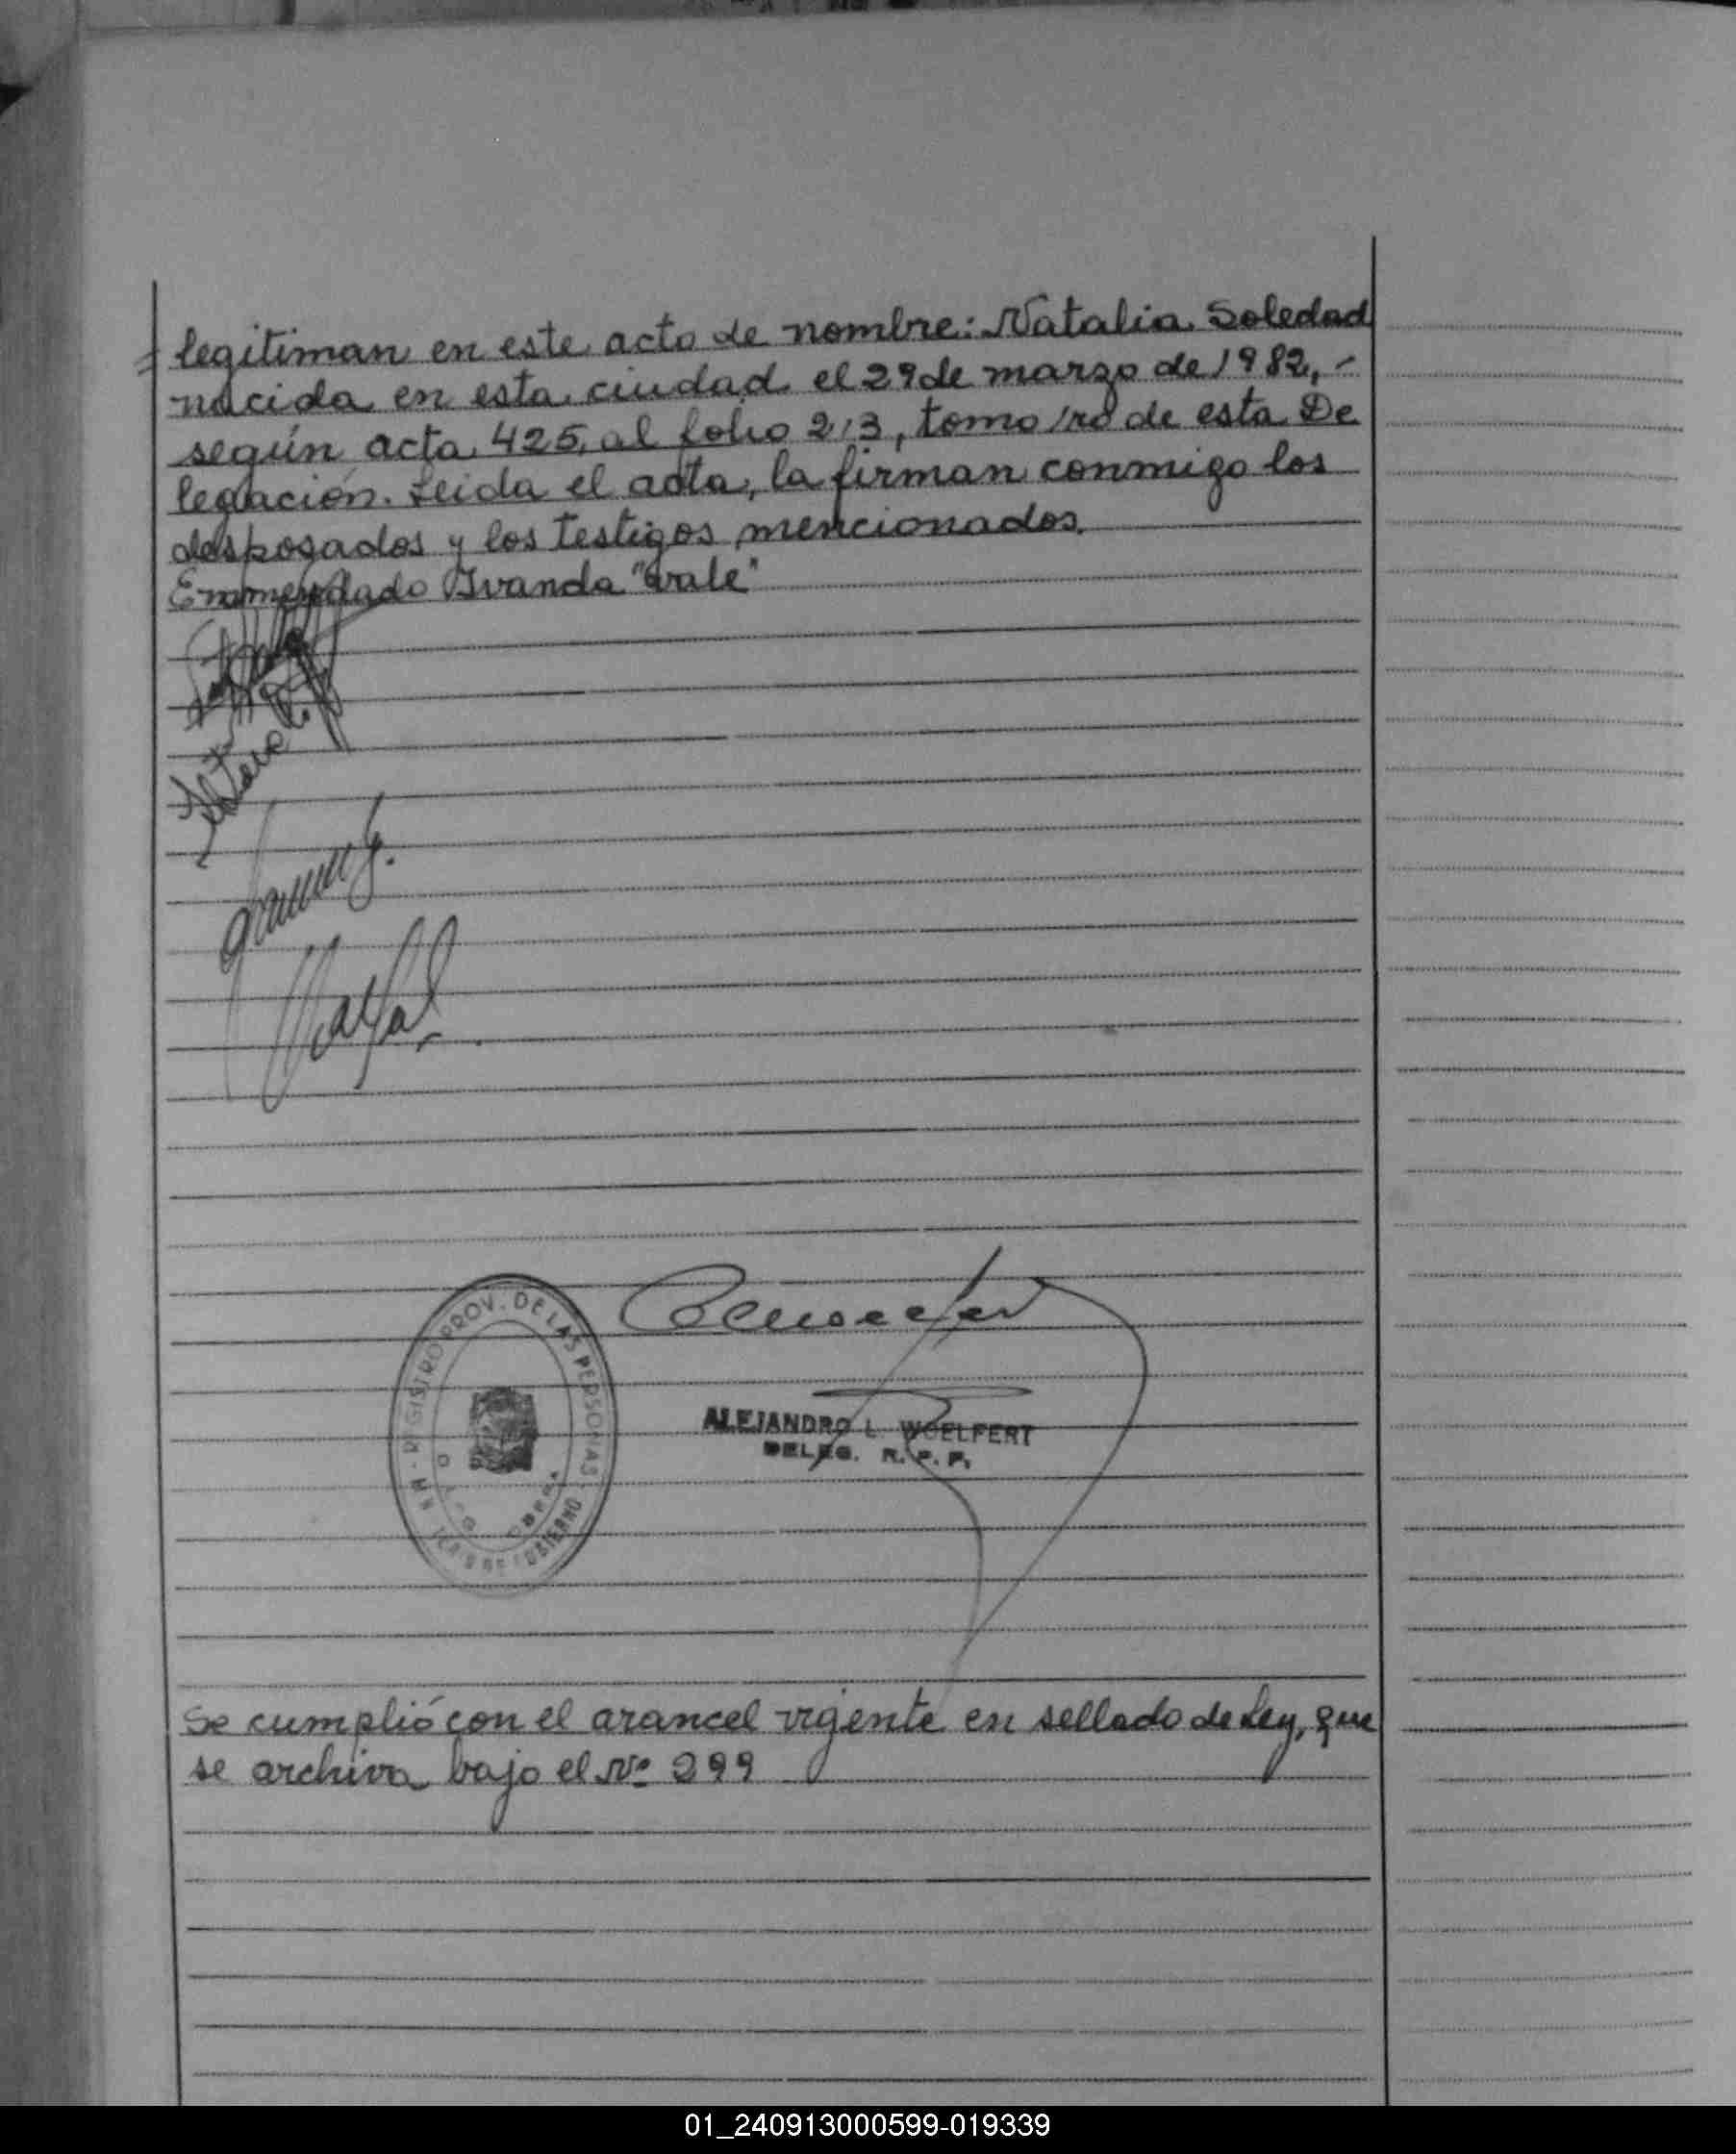 legitiman en este acto de nombre: Natalia Soledad
nacida en esta ciudad el 29 de marzo de 1982, -
según acta 425, al folio 213, tomo 1ro de esta De
legación. Leida el acta, la firman conmigo los
desposados y los testigos mencionados.
Enmendado Ivanda "vale"
REGISTRO PROV. DE LAS PERSONAS
ALEJANDRO L. WOELFERT
DELEG. R. P. P.
Se cumplió con el arancel vigente en sellado de Ley, que
se archiva bajo el Nº 299
01_240913000599-019339